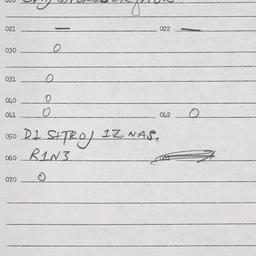 021 — 022 —
030 0
031 0
040 0
041 0 042 0
050 DISTROJ IZ NAS.
060 RIN3
070 0